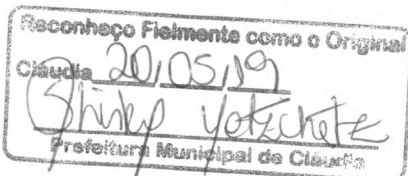 Reconheço Fielmente como o Original
Cláudia 20/05/19
Prefeitura Municipal de Cláudia